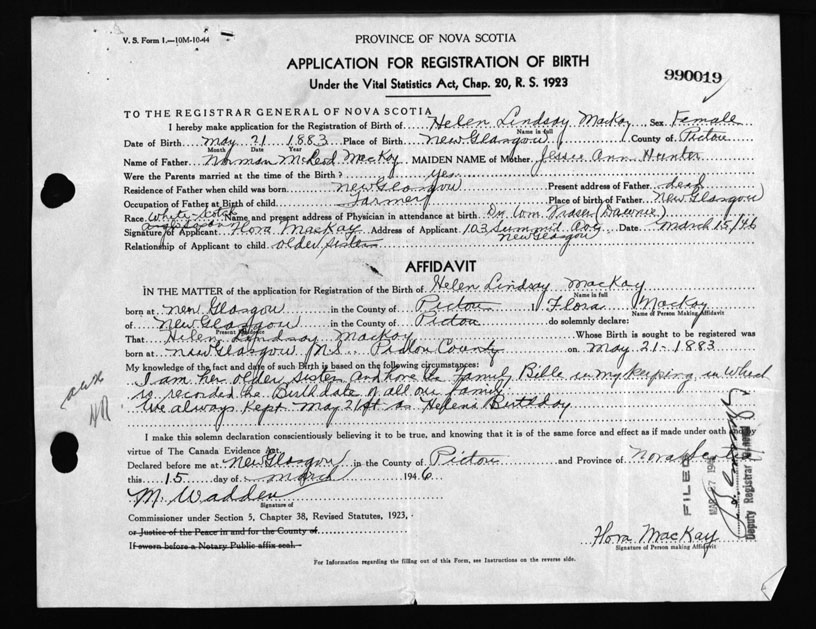 V. S. Form 1.—10M-10-44
PROVINCE OF NOVA SCOTIA
APPLICATION FOR REGISTRATION OF BIRTH
Under the Vital Statistics Act, Chap. 20, R. S. 1923
990019
TO THE REGISTRAR GENERAL OF NOVA SCOTIA
I hereby make application for the Registration of Birth of Helen Lindsay MacKay Sex Female
Name in full
Date of Birth May 21 1883 Place of Birth New Glasgow County of Pictou
Month Day Year
Name of Father Norman McLeod MacKay MAIDEN NAME of Mother Jessie Ann Hunter
Were the Parents married at the time of Birth? yes
Residence of Father when child was born New Glasgow Present address of Father
Occupation of Father at Birth of child Farmer Place of birth of Father New Glasgow
Race White Scotch Name and present address of Physician in attendance at birth Dr Wm. Fraser
Signature of Applicant Flora MacKay Address of Applicant 103 Summit Ave New Glasgow Date March 15/46
Relationship of Applicant to child older sister
AFFIDAVIT
IN THE MATTER of the application for Registration of the Birth of Helen Lindsay MacKay
Name in full
born at New Glasgow in the County of Pictou I Flora MacKay
Name of Person Making Affidavit
of New Glasgow in the County of Pictou do solemnly declare:
Present Residence
That Helen Lindsay MacKay Whose Birth is sought to be registered was
born at New Glasgow N.S. Pictou County on May 21-1883
My knowledge of the fact and date of such Birth is based on the following circumstances:
I am her older sister and have the family Bible in my keeping in which
is recorded the Birthdate of all our family
We always kept May 21st as Helens Birthday
I make this solemn declaration conscientiously believing it to be true, and knowing that it is of the same force and effect as if made under oath and by
virtue of The Canada Evidence Act.
Declared before me at New Glasgow in the County of Pictou and Province of Nova Scotia
this 15 day of March 1946
M. Wadden
Signature of
Commissioner under Section 5, Chapter 38, Revised Statutes, 1923,
or Justice of the Peace in and for the County of
If sworn before a Notary Public affix seal.
FILED
MAR 27 194
Deputy Registrar
Flora MacKay
Signature of Person making Affidavit
For Information regarding the filling out of this Form, see Instructions on the reverse side.